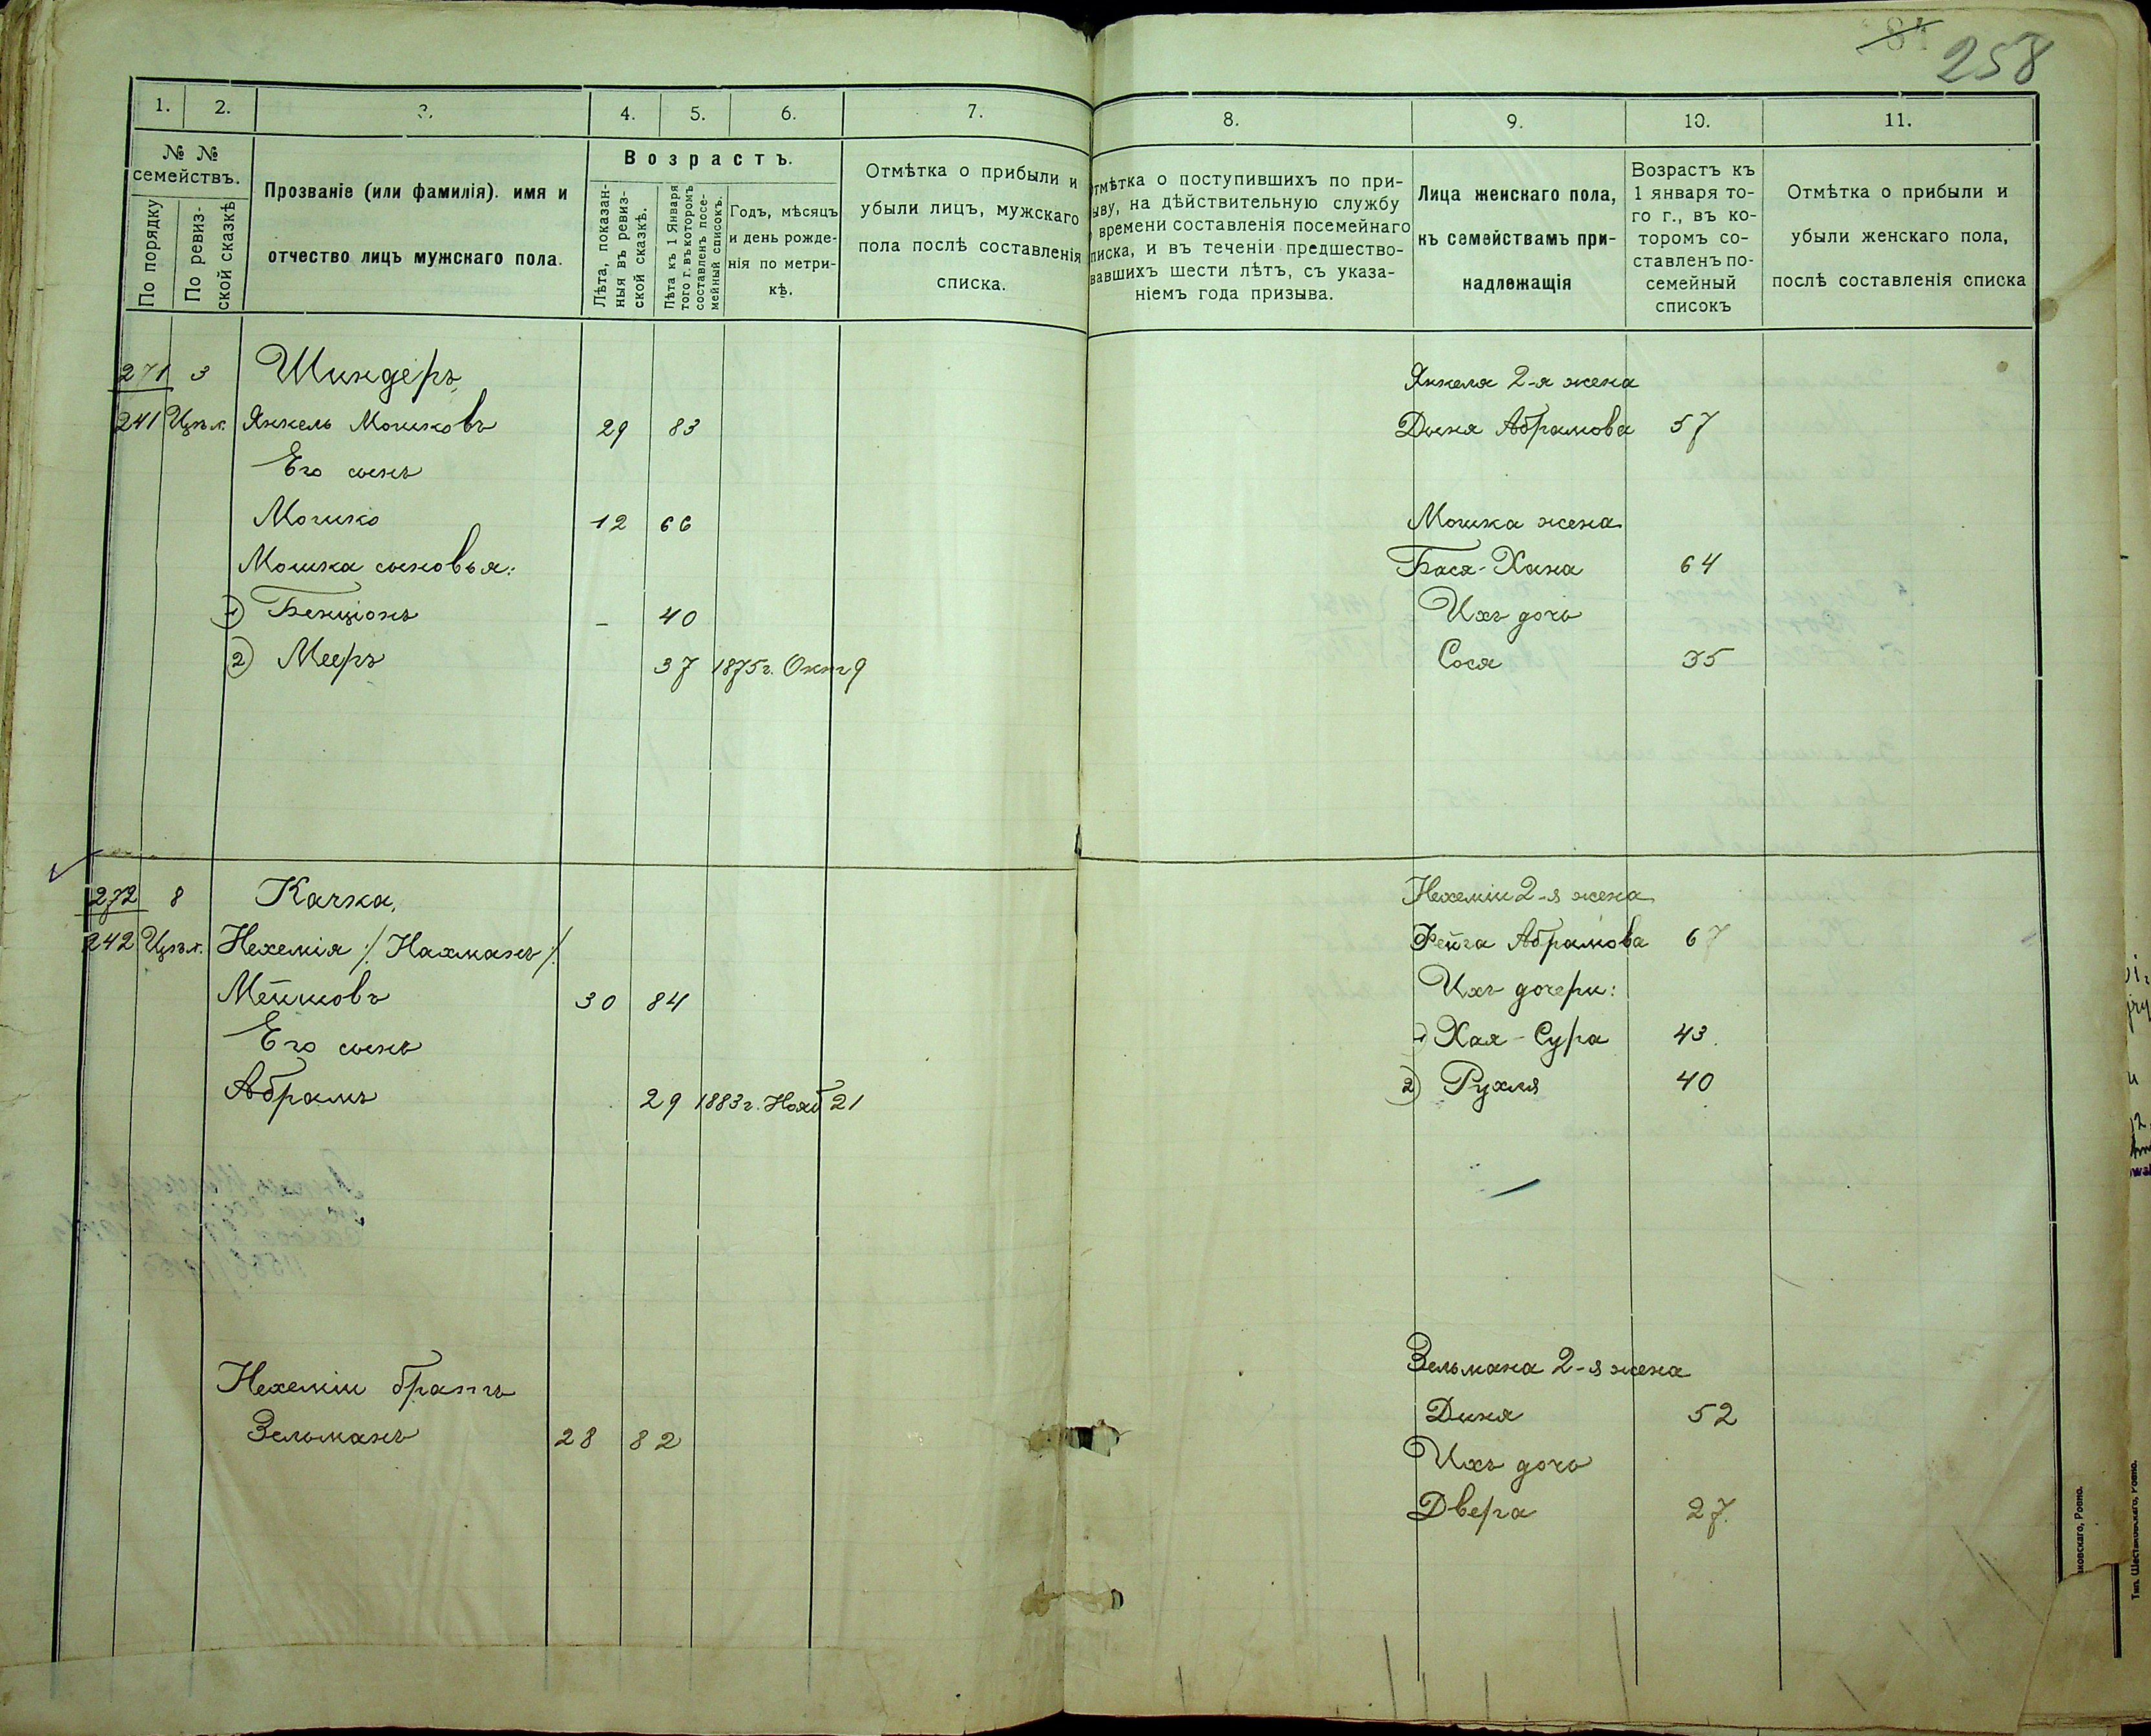 258
1. 2. 3. 4. 5. 6. 7.
№ № семействъ.
По порядку
По ревизской сказкѣ
Прозваніе (или фамилія). имя и
отчество лицъ мужскаго пола.
Возрастъ.
Лѣта, показан-
ныя въ ревиз-
ской сказкѣ.
Лѣта къ 1 Января
того г. въ которомъ
составленъ посе-
мейный списокъ.
Годъ, мѣсяцъ
и день рожде-
нія по метри-
кѣ.
Отмѣтка о прибыли и
убыли лицъ, мужскаго
пола послѣ составленія
списка.
271 3 Шиндеръ
241 Янкель Мошковъ 29 83
Его сынъ
Мошко 12 66
Мошка сыновья:
1) Бенціонъ - 40
2) Мееръ 37 1875г. Окт 9
272 8 Качка
242 Нехемія /:Нахманъ:/
Мейшовъ 30 84
Его сынъ
Абрамъ 29 1883г. Нояб 21
Нехеміи братъ
Зельманъ 28 82
8. 9. 10. 11.
Отмѣтка о поступившихъ по при-
ыву, на дѣйствительную службу
времени составленія посемейнаго
писка, и въ теченіи предшество-
вавшихъ шести лѣтъ, съ указа-
ніемъ года призыва.
Лица женскаго пола,
къ семействамъ при-
надлежащія
Возрастъ къ
1 января то-
го г., въ ко-
торомъ со-
ставленъ по-
семейный
списокъ
Отмѣтка о прибыли и
убыли женскаго пола,
послѣ составленія списка
Янкеля 2-я жена
Дыня Абрамова 57
Мошка жена
Бася-Хана 64
Ихъ дочь
Сося 35
Нехеміи 2-я жена
Фейга Абрамова 67
Ихъ дочери:
1) Хая-Сура 43
2) Рухля 40
Зельмана 2-я жена
Диня 52
Ихъ дочь
Двера 27.
ковскаго, Ровно.
Тип. Шестаковскаго, Ровно.